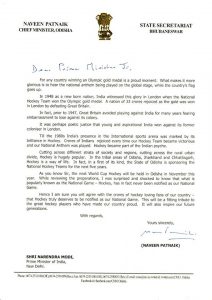 NAVEEN PATNAIK
CHIEF MINISTER, ODISHA
STATE SECRETARIAT
BHUBANESWAR
Dear Prime Minister Ji,
For any country winning an Olympic gold medal is a proud moment. What makes it more
glorious is to hear the national anthem being played on the global stage, while the country's flag
goes up.
In 1948 as a new born nation, India witnessed this glory in London when the National
Hockey Team won the Olympic gold medal. A nation of 33 crores rejoiced as the gold was won
in London by defeating Great Britain.
In fact, prior to 1947, Great Britain avoided playing against India for many years fearing
embarrassment to losing to its colony.
It was perhaps poetic justice that young and aspirational India won against its former
coloniser in London.
Till the 1980s India's presence in the international sports arena was marked by its
brilliance in Hockey. Crores of Indians rejoiced every time our Hockey Team became victorious
and our National Anthem was played. Hockey became part of the Indian psyche.
Cutting across different strata of society and regions, cutting across the rural urban
divide, Hockey is hugely popular. In the tribal areas of Odisha, Jharkhand and Chhattisgarh,
Hockey is a way of life. In fact, in a first of its kind, the State of Odisha is sponsoring the
National Hockey Teams for the next five years.
As you know Sir, the next World Cup Hockey will be held in Odisha in November this
year. While reviewing the preparations, I was surprised and shocked to know that what is
popularly known as the National Game - Hockey, has in fact never been notified as our National
Game.
Hence I am sure you will agree with the crores of hockey loving fans of our country -
that Hockey truly deserves to be notified as our National Game. This will be a fitting tribute to
the great hockey players who have made our country proud. It will also inspire our future
generations.
With regards,
Yours sincerely,
(NAVEEN PATNAIK)
SHRI NARENDRA MODI,
Prime Minister of India,
New Delhi.